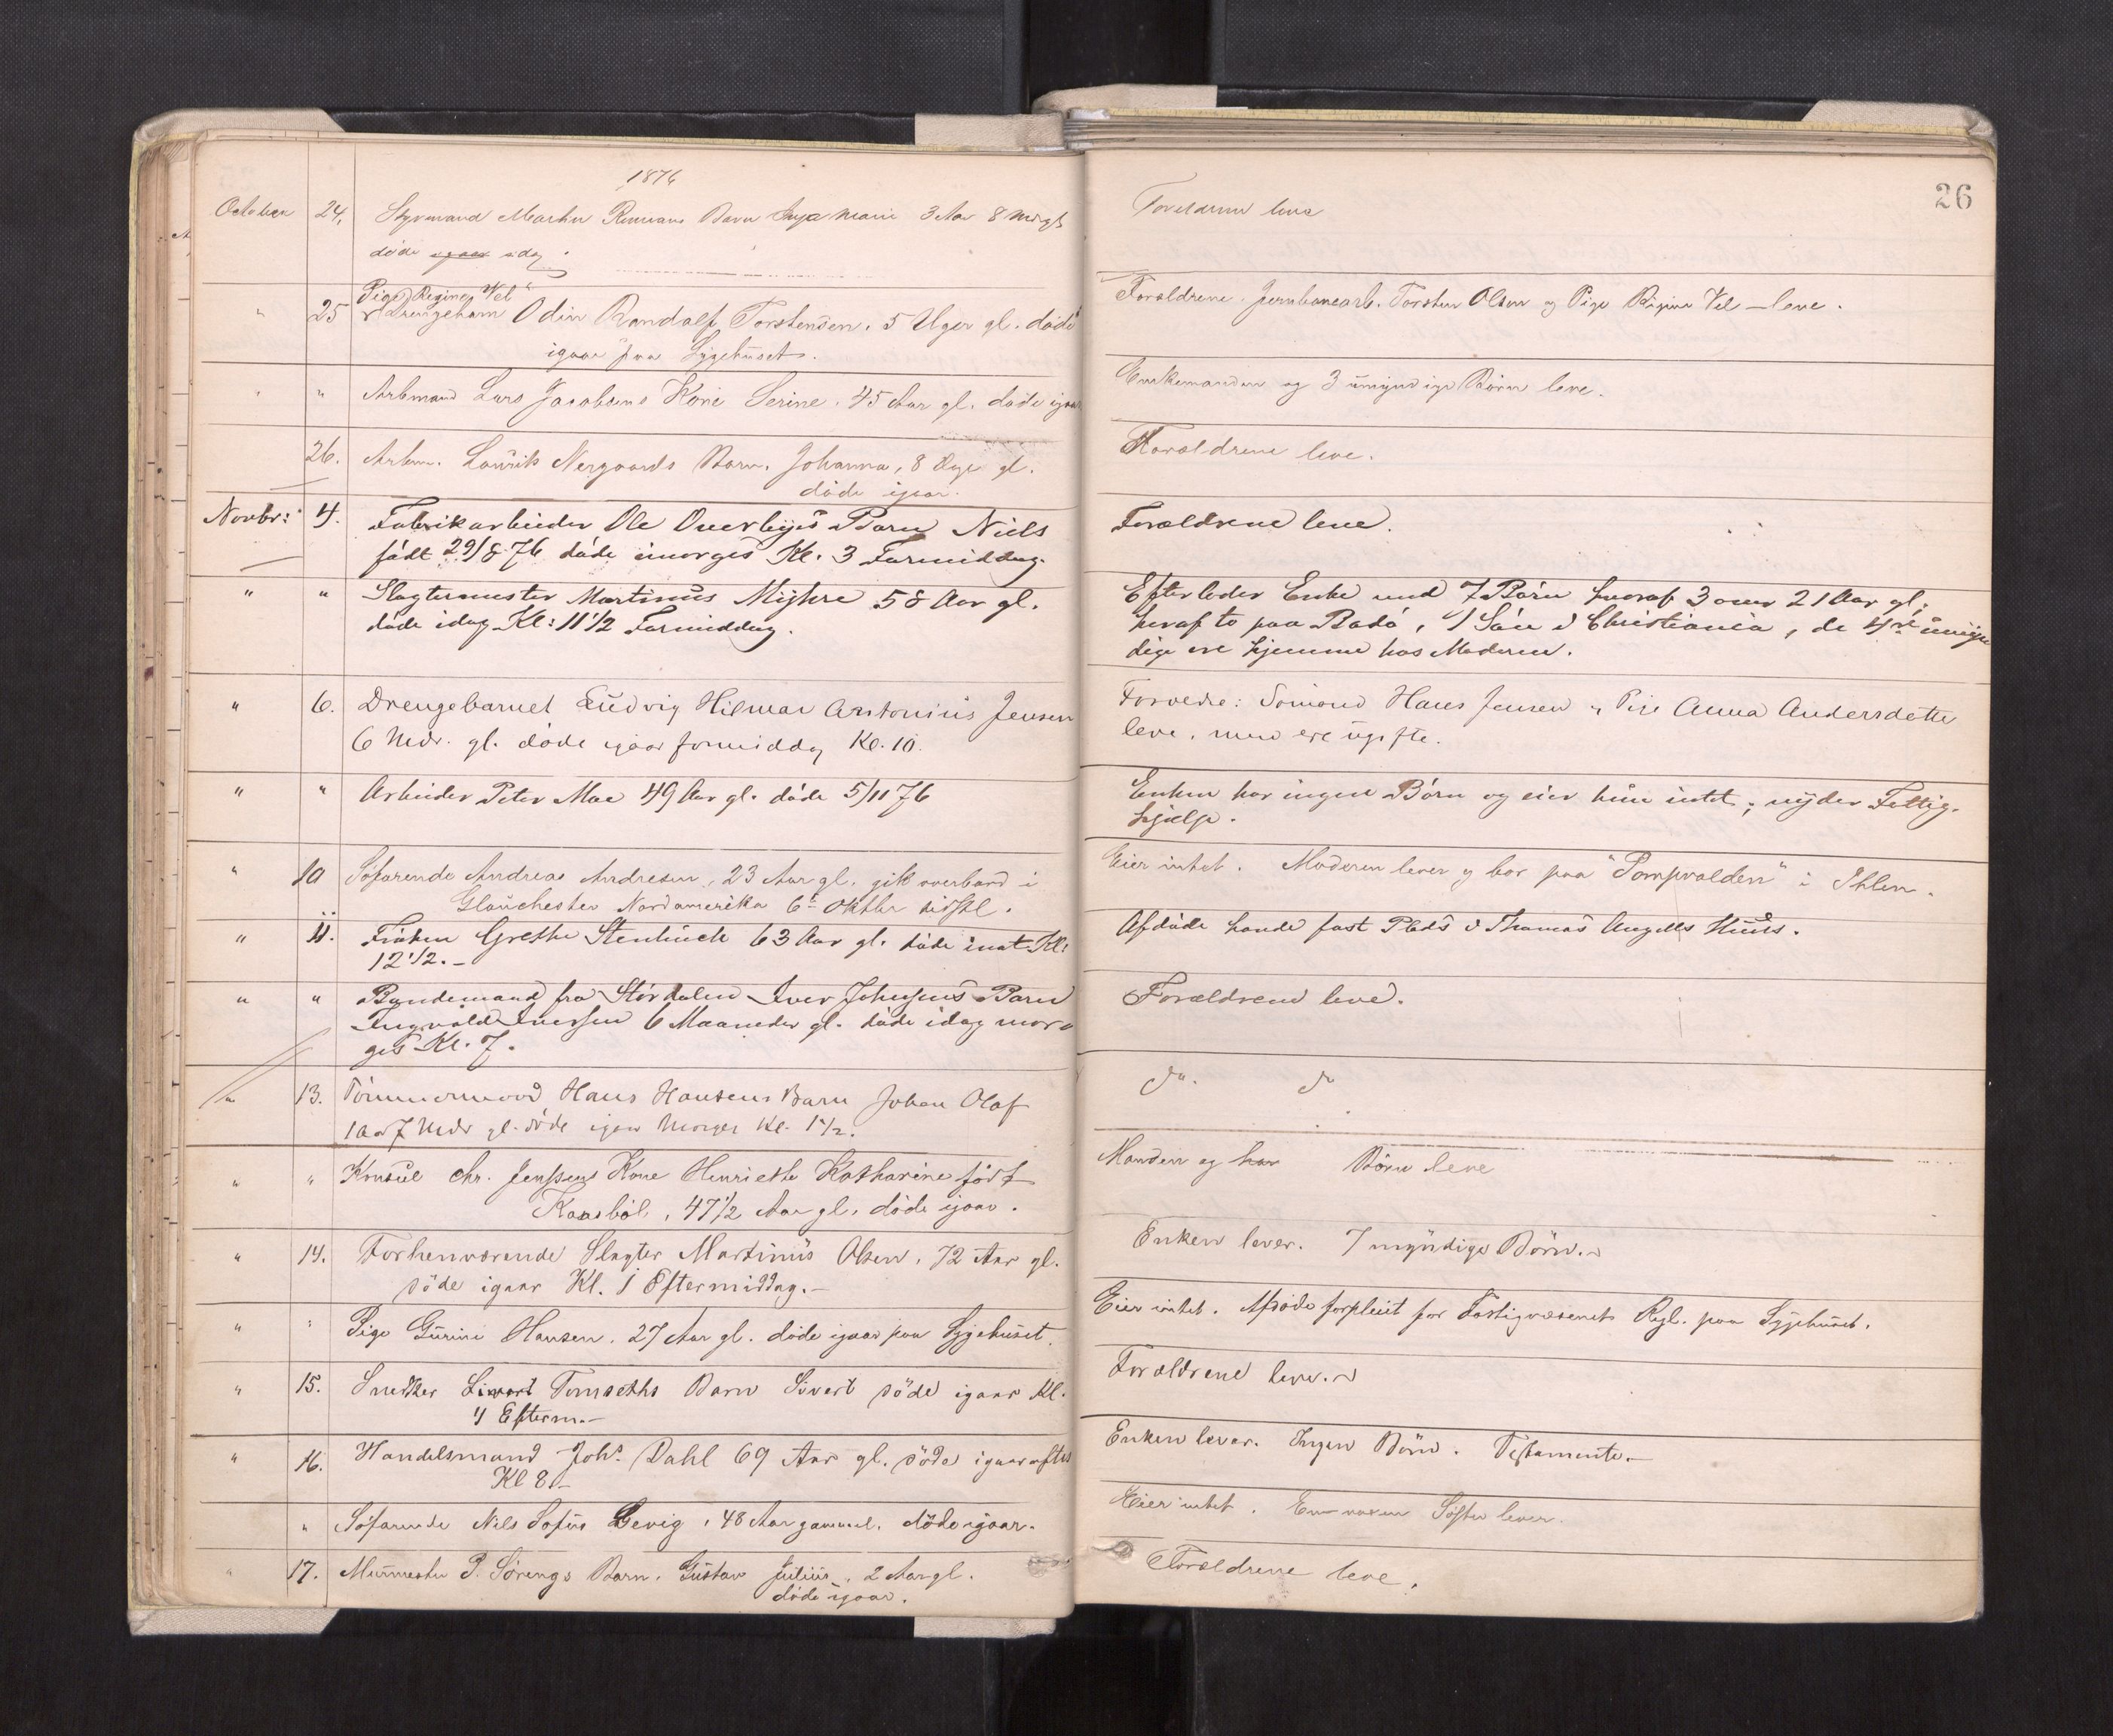 1876
October 24, Styrmand Martin Barn Inga Marie 3 Aar 8 Md gl
døde igaar idag.
Pige Regine Vel
" 25 Drengebarn Odin Randalf Torstensen. 5 Uger gl. døde
igaar paa Sygehuset.
" " Arbmand Lars Jacobsens Kone Serine. 45 Aar gl. døde igaar
26. Arbm. Laurik Nergaards Barn. Johanna, 8 Dage gl.
døde igaar.
Novbr: 4. Fabrikarbeider Ole Overbyes Barn Niels
født 29/8 76 døde imorges Kl. 3 Formiddag.
" " Slagtermester Martinus Myhre 58 Aar gl.
døde idag Kl: 11 1/2 Formiddag.
" 6. Drengebarnet Ludvig Hilmar Antonius Jensen
6 Mdr. gl. døde igaar formiddag Kl. 10.
" " Arbeider Peter Moe 49 Aar gl. døde 5/11 76
" 10 Søfarende Andreas Andresen, 23 Aar gl. gik overbord i
Glouchester Nordamerika 6te Oktbr sidstl.
" 11. Frøken Grethe Stenbuch 63 Aar gl. døde inat Kl:
12 1/2.-
" " Bondemand fra Størdalen Iver Johnsens Barn
Ingvald Iversen 6 Maaneder gl. døde idag mor-
ges Kl. 7.
" 13. Tømmermand Hans Hansens Barn Johan Olaf
1 Aar 7 Mdr gl. døde igaar Morges Kl. 1 1/2.
" " Konsul Chr. Jenssens Kone Henriette Katharine født
Kaasbøl, 47 1/2 Aar gl. døde igaar.
" 14. Forhenværende Slagter Martinus Olsen, 72 Aar gl.
døde igaar Kl. 1 Eftermiddag.-
" " Pige Gurine Hansen. 27 Aar gl. døde igaar paa Sygehuset.
" 15. Snedker Sivert Tomseths Barn Sivert døde igaar Kl.
4 Efterm.-
" 16. Handelsmand Johs. Dahl 69 Aar gl. døde igaaraftes
Kl 8.-
" Søfarende Nils Sofus Gevig, 48 Aar gammel. døde igaar.
" 17. Murmester P. Sørengs Barn. Gustav Julius, 2 Aar gl.
døde igaar.
26
Forældrene leve
Forældrene. Jernbanearb. Torsten Olsen og Pige Regine Vel - leve.
Enkemanden og 3 umyndige Børn leve.
Forældrene leve.
Forældrene leve.
Efterlader Enke med 7 Børn hvoraf 3 over 21 Aar gl;
heraf to paa Bodø, 1 Søn i Christiania, de 4re umyn
dige ere hjemme hos Moderen.
Forældre: Sømand Hans Jensen og Pige Anna Andersdatter
leve, men ere ugifte.
Enken har ingen Børn og eier hun intet; nyder Fattig-
hjælp.
Eier intet. Moderen lever og bor paa "Pompvolden" i Ihlen.
Afdøde havde fast Plads i Thomas Angells Huus.
Forældrene leve.
do. do
Manden og har Børn leve
Enken lever. 7 myndige Børn.
Eier intet. Afdøde forpleiet for Fattigvæsenets Regl. paa Sygehuset.
Forældrene leve.
Enken lever. Ingen Børn. Testamente.-
Eier intet. En voxen Søster lever.
Forældrene leve.